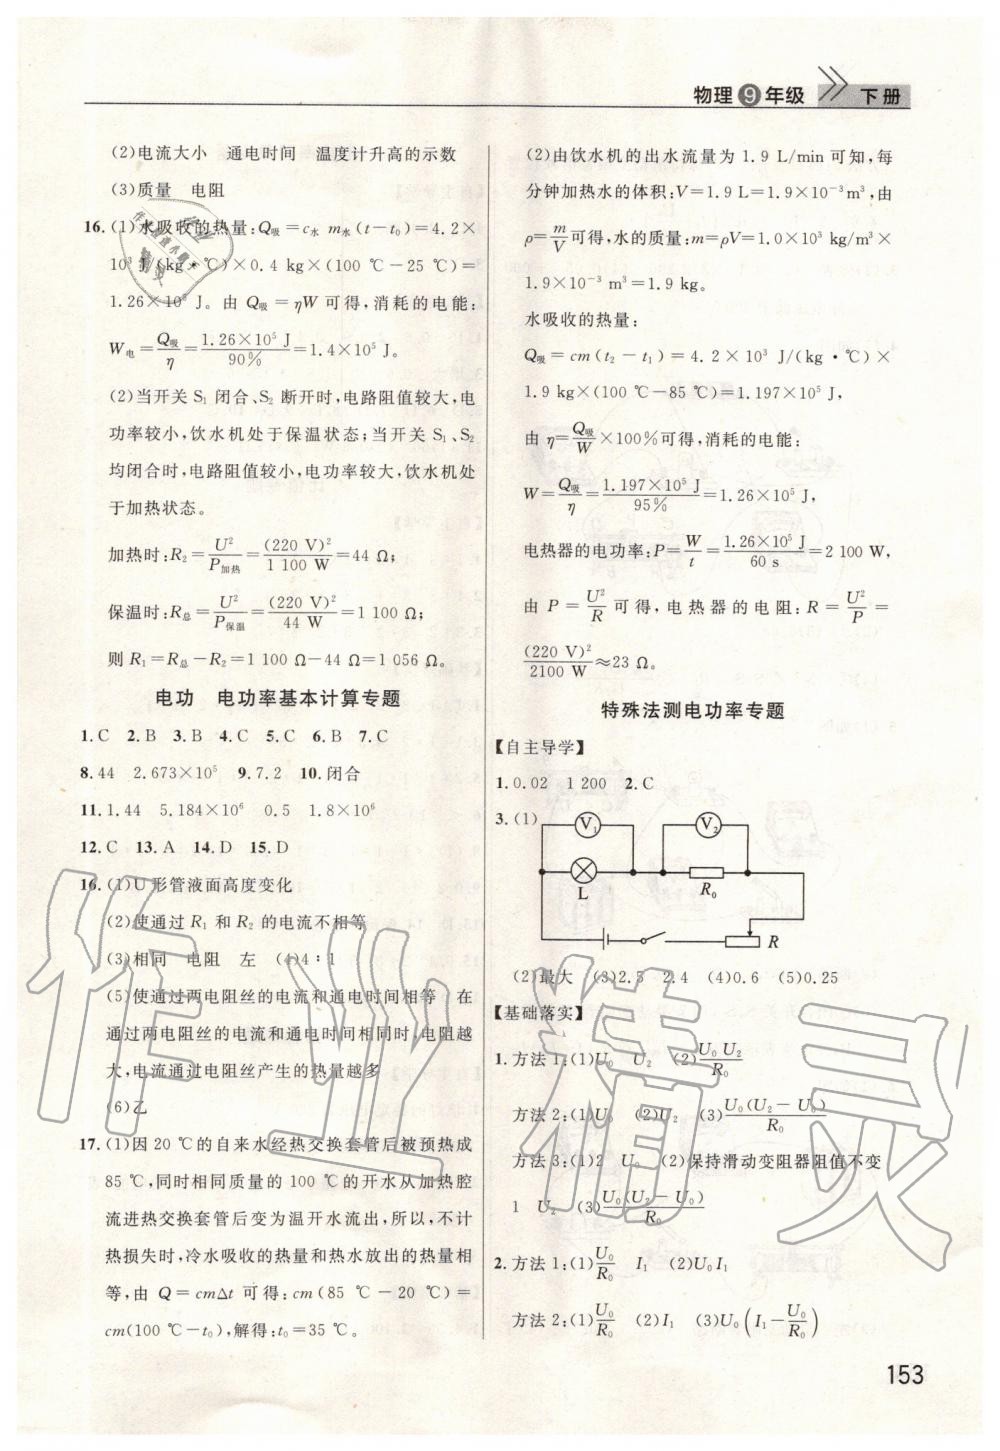 物理9年级 下册
(2)电流大小 通电时间 温度计升高的示数
(3)质量 电阻
16.(1)水吸收的热量:Q吸=c水 m水(t-t₀)=4.2×
10³ J/(kg·℃)×0.4 kg×(100 ℃-25 ℃)=
1.26×10⁵ J。由 Q吸=ηW 可得,消耗的电能:
W电=Q吸/η=1.26×10⁵ J/90%=1.4×10⁵ J。
(2)当开关 S₁ 闭合、S₂ 断开时,电路阻值较大,电
功率较小,饮水机处于保温状态;当开关 S₁、S₂
均闭合时,电路阻值较小,电功率较大,饮水机处
于加热状态。
加热时:R₂=U²/P加热=(220 V)²/1 100 W=44 Ω;
保温时:R总=U²/P保温=(220 V)²/44 W=1 100 Ω;
则 R₁=R总-R₂=1 100 Ω-44 Ω=1 056 Ω。
电功 电功率基本计算专题
1.C 2.B 3.B 4.C 5.C 6.B 7.C
8.44 2.673×10⁵ 9.7.2 10.闭合
11.1.44 5.184×10⁶ 0.5 1.8×10⁶
12.C 13.A 14.D 15.D
16.(1)U 形管液面高度变化
(2)使通过 R₁ 和 R₂ 的电流不相等
(3)相同 电阻 左 (4)4∶1
(5)使通过两电阻丝的电流和通电时间相等 在
通过两电阻丝的电流和通电时间相同时,电阻越
大,电流通过电阻丝产生的热量越多
(6)乙
17.(1)因 20 ℃的自来水经热交换套管后被预热成
85 ℃,同时相同质量的 100 ℃的开水从加热腔
流进热交换套管后变为温开水流出,所以,不计
热损失时,冷水吸收的热量和热水放出的热量相
等,由 Q=cmΔt 可得:cm(85 ℃-20 ℃)=
cm(100 ℃-t₀),解得:t₀=35 ℃。
(2)由饮水机的出水流量为 1.9 L/min 可知,每
分钟加热水的体积:V=1.9 L=1.9×10⁻³ m³,由
ρ=m/V可得,水的质量:m=ρV=1.0×10³ kg/m³×
1.9×10⁻³ m³=1.9 kg。
水吸收的热量:
Q吸=cm(t₂-t₁)=4.2×10³ J/(kg·℃)×
1.9 kg×(100 ℃-85 ℃)=1.197×10⁵ J,
由 η=Q吸/W×100%可得,消耗的电能:
W=Q吸/η=1.197×10⁵ J/95%=1.26×10⁵ J,
电热器的电功率:P=W/t=1.26×10⁵ J/60 s=2 100 W,
由 P=U²/R 可得,电热器的电阻:R=U²/P=
(220 V)²/2100 W≈23 Ω。
特殊法测电功率专题
【自主导学】
1.0.02 1 200 2.C
3.(1)
V₁ V₂
L R₀
R
(2)最大 (3)2.5 2.4 (4)0.6 (5)0.25
【基础落实】
1.方法 1:(1)U₀ U₂ (2)U₀U₂/R₀
方法 2:(1)U₀ (2)U₂ (3)U₀(U₂-U₀)/R₀
方法 3:(1)2 U₀ (2)保持滑动变阻器阻值不变
1 U₂ (3)U₀(U₂-U₀)/R₀
2.方法 1:(1)U₀/R₀ I₁ (2)U₀I₁
方法 2:(1)U₀/R₀ (2)I₁ (3)U₀(I₁-U₀/R₀)
153
作业精灵